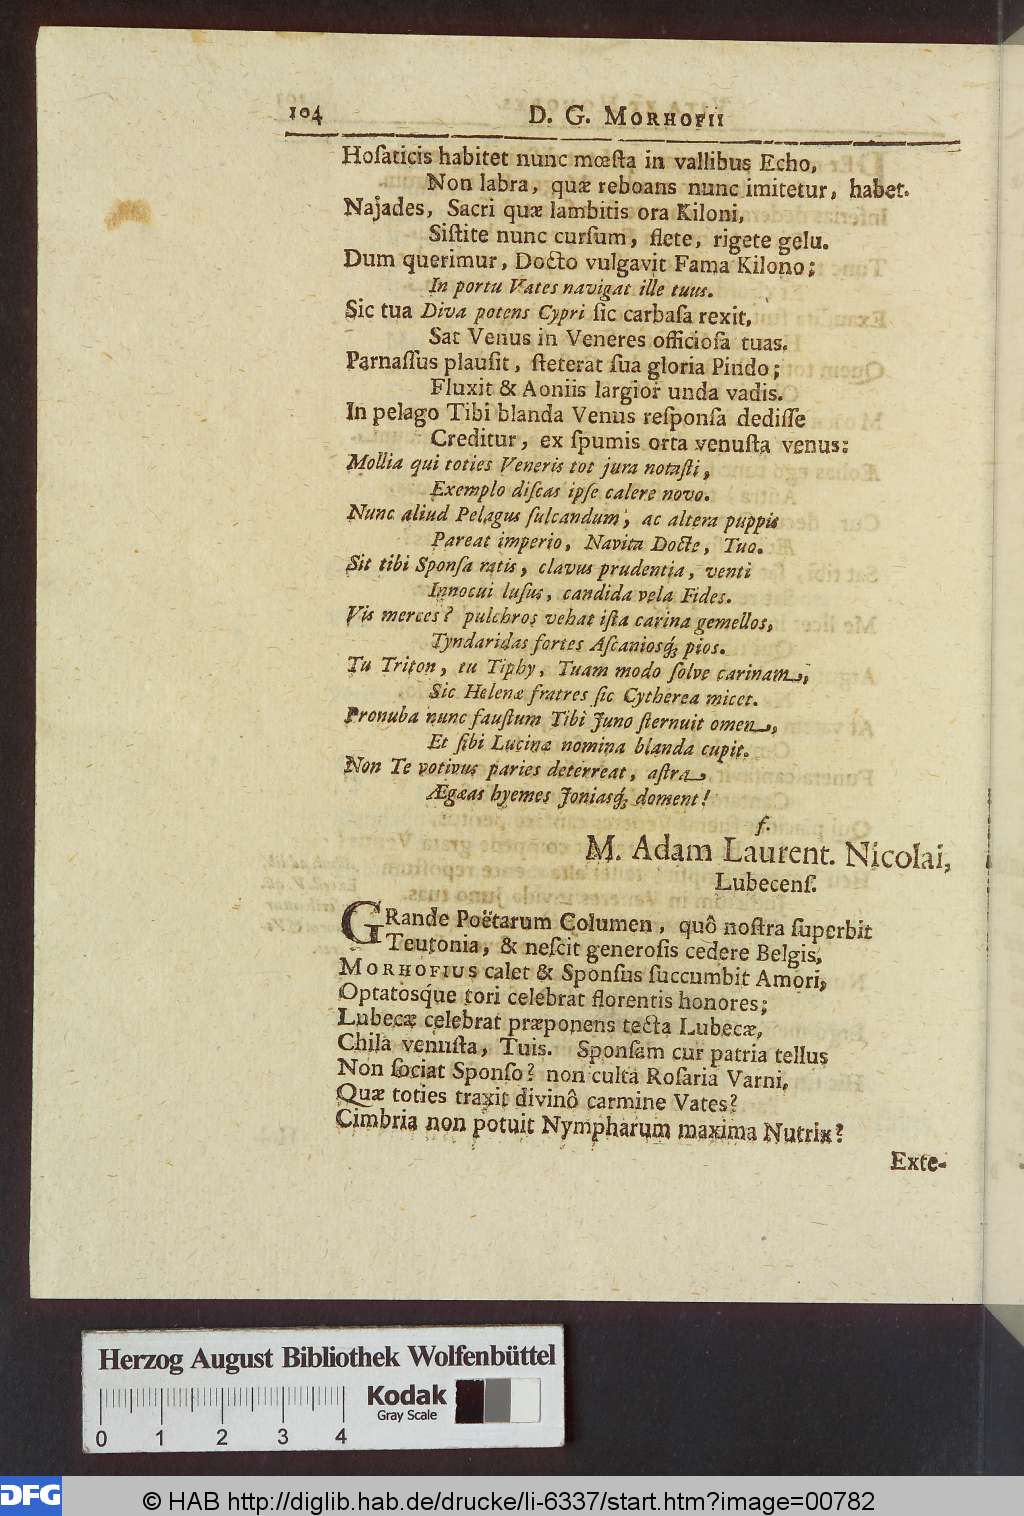 104 D. G. MORHOFII
Hoſaticis habitet nunc mœſta in vallibus Echo,
Non labra, quæ reboans nunc imitetur, habet.
Najades, Sacri quæ lambitis ora Kiloni,
Siſtite nunc curſum, flete, rigete gelu.
Dum querimur, Docto vulgavit Fama Kilono;
In portu Vates navigat ille tuus.
Sic tua Diva potens Cypri ſic carbaſa rexit,
Sat Venus in Veneres officioſa tuas.
Parnaſſus plauſit, ſteterat ſua gloria Pindo;
Fluxit & Aoniis largior unda vadis.
In pelago Tibi blanda Venus reſponſa dediſſe
Creditur, ex ſpumis orta venuſta venus:
Mollia qui toties Veneris tot jura notaſti,
Exemplo diſcas ipſe calere novo.
Nunc aliud Pelagus ſulcandum, ac altera puppis
Pareat imperio, Navita Docte, Tuo.
Sit tibi Sponſa ratis, clavus prudentia, venti
Innocui luſus, candida vela Fides.
Vis merces? pulchros vehat iſta carina gemellos,
Tyndaridas fortes Aſcaniosq́; pios.
Tu Triton, tu Tiphy, Tuam modo ſolve carinam,
Sic Helenæ fratres ſic Cytherea micet.
Pronuba nunc fauſtum Tibi Juno ſternuit omen,
Et ſibi Lucinæ nomina blanda cupit.
Non Te votivus paries deterreat, aſtra
Ægæas hyemes Joniasq́; doment!
f.
M. Adam Laurent. Nicolai,
Lubecenſ.
GRande Poëtarum Columen, quô noſtra ſuperbit
Teutonia, & neſcit generoſis cedere Belgis,
MORHOFIUS calet & Sponſus ſuccumbit Amori,
Optatosq́ue tori celebrat florentis honores;
Lubecæ celebrat præponens tecta Lubecæ,
Chila venuſta, Tuis. Sponſam cur patria tellus
Non ſociat Sponſo? non culta Roſaria Varni,
Quæ toties traxit divinô carmine Vates?
Cimbria non potuit Nympharum maxima Nutrix?
Exte-
Herzog August Bibliothek Wolfenbüttel
Kodak
Gray Scale
0 1 2 3 4
DFG
© HAB http://diglib.hab.de/drucke/li-6337/start.htm?image=00782